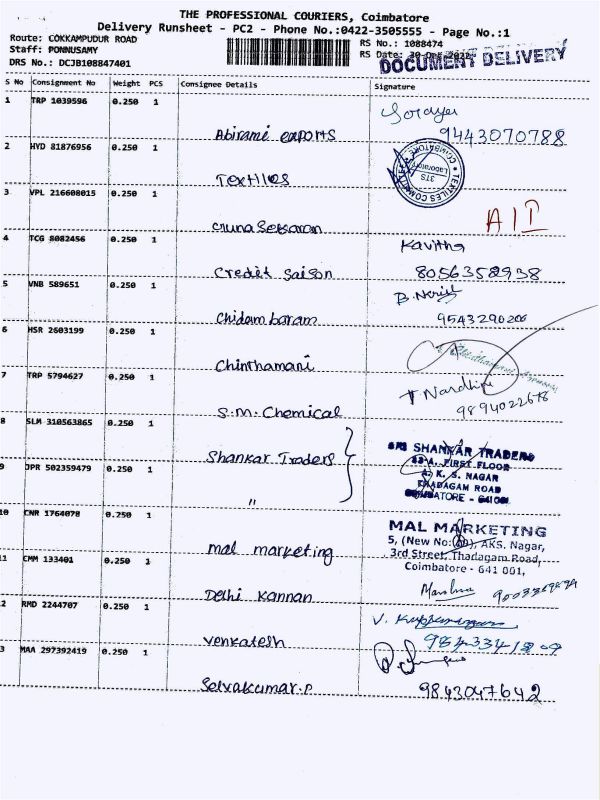 THE PROFESSIONAL COURIERS, Coimbatore
Delivery Runsheet - PC2 - Phone No.:0422-3505555 - Page No.:1
Route: COKKAMPUDUR ROAD
Staff: PONNUSAMY
DRS No.: DCJB108847401
RS No.: 1088474
RS Date: 30-Dec-2022
DOCUMENT DELIVERY
S No Consignment No Weight PCS Consignee Details Signature
1 TRP 1039596 0.250 1
Abirami exports 9443070788
2 HYD 81876956 0.250 1
Textiles
TEXTILES COMMITTEE COIMBATORE
STS
Laboratory
3 VPL 216608015 0.250 1
AII
4 TCG 8082456 0.250 1
Kavitha
Credit Saison 8056358938
5 VNB 589651 0.250 1
Chidambaram 9543290206
6 HSR 2603199 0.250 1
Chinthamani
7 TRP 5794627 0.250 1
T Nandhini
S.M. Chemical 9894022678
8 SLM 310563865 0.250 1
Shankar Traders
SRI SHANKAR TRADERS
FIRST FLOOR
A. K. S. NAGAR
THADAGAM ROAD
COIMBATORE - 641001
9 JPR 502359479 0.250 1
"
10 CNR 1764078 0.250 1
mal marketing
MAL MARKETING
5, (New No: AKS. Nagar,
3rd Street, Thadagam Road,
Coimbatore - 641 001,
11 CMM 133401 0.250 1
Delhi Kannan
2 RMD 2244707 0.250 1
V. Kuppuswamy
Venkatesh
3 MAA 297392419 0.250 1
Selvakumar.P 9843047642